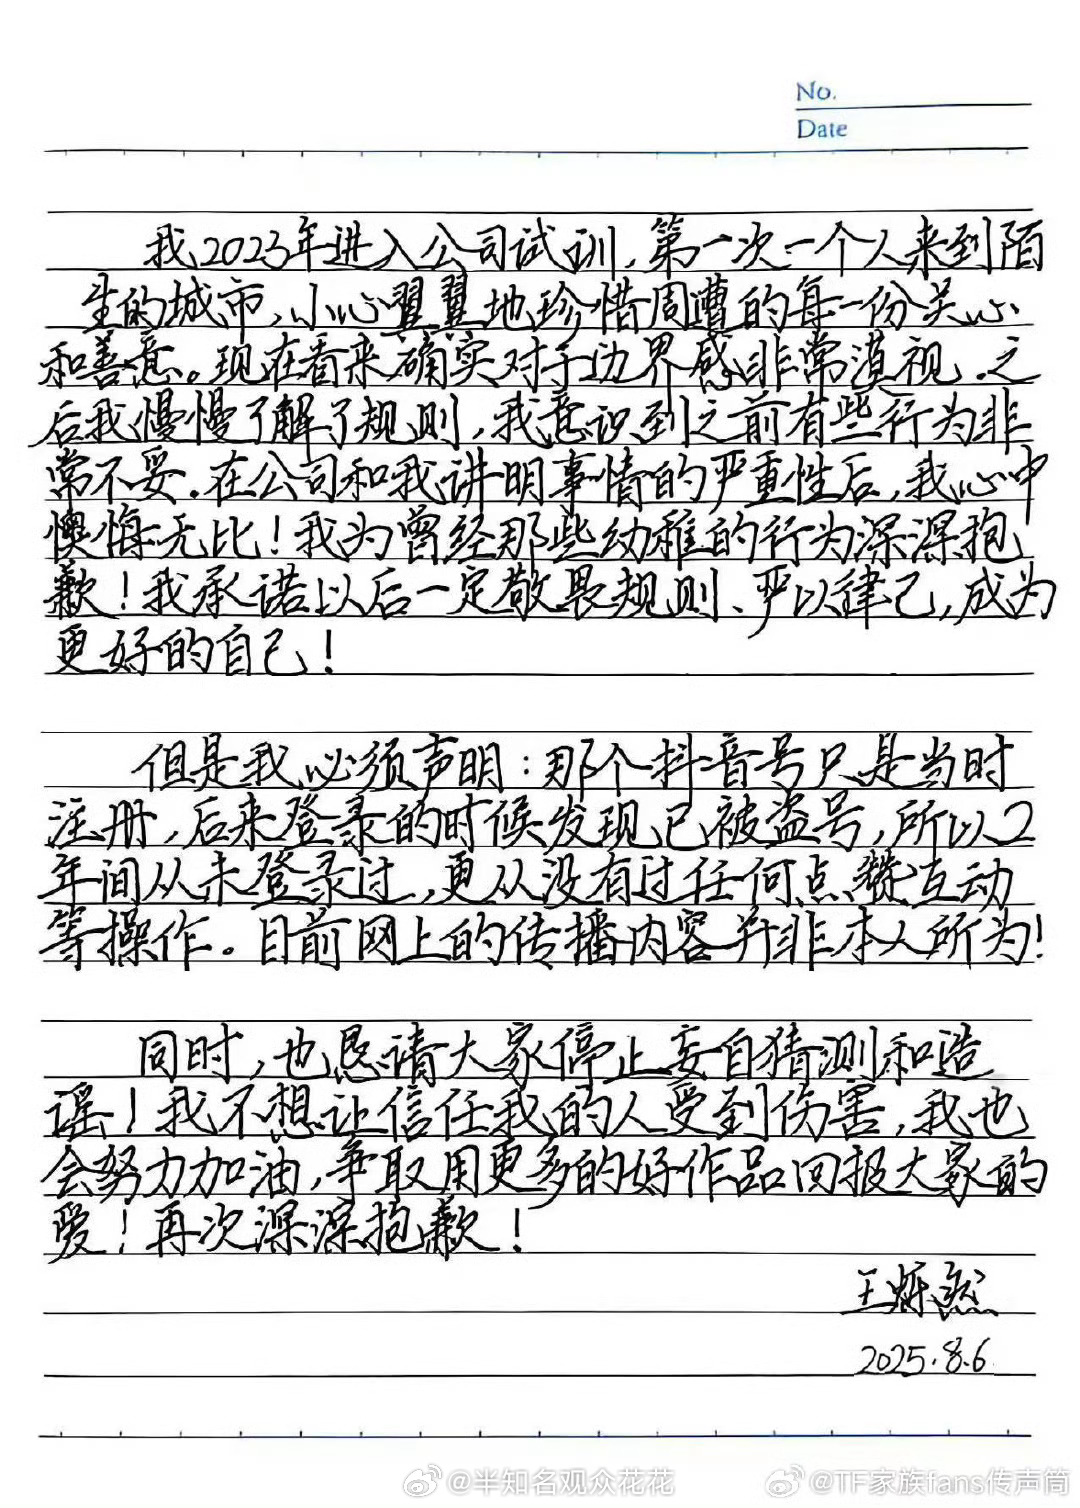 No.
Date
我2023年进入公司试训，第一次一个人来到陌
生的城市，小心翼翼地珍惜周遭的每一份关心
和善意。现在看来确实对于边界感非常漠视．之
后我慢慢了解了规则，我意识到之前有些行为非
常不妥．在公司和我讲明事情的严重性后，我心中
懊悔无比！我为曾经那些幼稚的行为深深抱
歉！我承诺以后一定敬畏规则、严以律己，成为
更好的自己！
但是我必须声明：那个抖音号只是当时
注册，后来登录的时候发现已被盗号，所以2
年间从未登录过，更从没有过任何点赞互动
等操作。目前网上的传播内容并非本人所为！
同时，也恳请大家停止妄自猜测和造
谣！我不想让信任我的人受到伤害，我也
会努力加油，争取用更多的好作品回报大家的
爱！再次深深抱歉！
王烁然
2025.8.6
@半知名观众花花
@TF家族fans传声筒